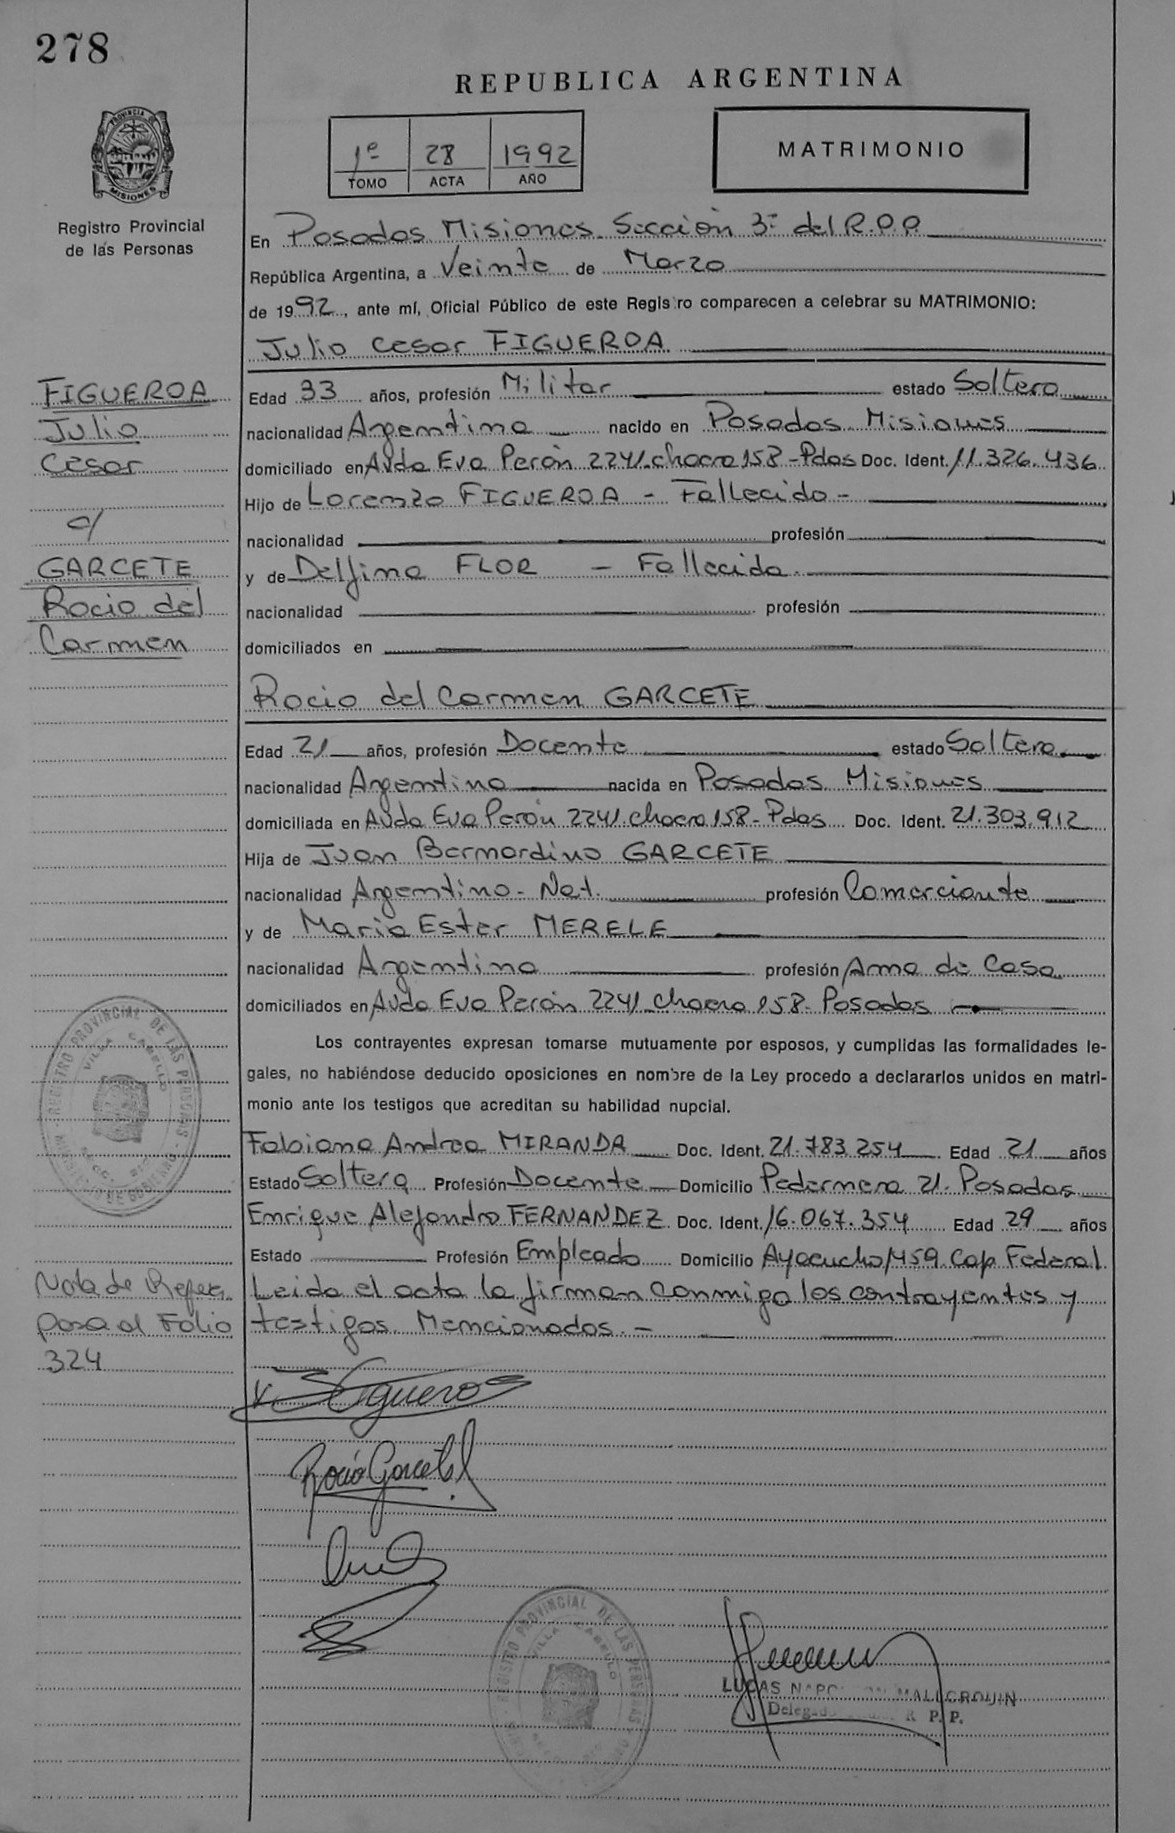 278
REPUBLICA ARGENTINA
PROVINCIA DE MISIONES
Registro Provincial
de las Personas
1º 28 1992
TOMO ACTA AÑO
MATRIMONIO
En Posadas Misiones Sección 3ª del R.P.P.
República Argentina, a Veinte de Marzo
de 1992, ante mí, Oficial Público de este Registro comparecen a celebrar su MATRIMONIO:
Julio Cesar FIGUEROA
FIGUEROA
Julio
Cesar
c/
GARCETE
Rocio del
Carmen
Edad 33 años, profesión Militar estado Soltero
nacionalidad Argentina nacido en Posadas Misiones
domiciliado en Avda Eva Perón 2241 chacra 158 - Pdas Doc. Ident. 11.326.436
Hijo de Lorenzo FIGUEROA - Fallecido -
nacionalidad profesión
y de Delfina FLOR - Fallecida
nacionalidad profesión
domiciliados en
Rocio del Carmen GARCETE
Edad 21 años, profesión Docente estado Soltera
nacionalidad Argentina nacida en Posadas Misiones
domiciliada en Avda Eva Perón 2241 chacra 158 - Pdas Doc. Ident. 21.303.912
Hija de Juan Bernardino GARCETE
nacionalidad Argentino - Nat. profesión Comerciante
y de Maria Ester MERELE
nacionalidad Argentina profesión Ama de Casa
domiciliados en Avda Eva Perón 2241 chacra 158 - Posadas
Los contrayentes expresan tomarse mutuamente por esposos, y cumplidas las formalidades le-
gales, no habiéndose deducido oposiciones en nombre de la Ley procedo a declararlos unidos en matri-
monio ante los testigos que acreditan su habilidad nupcial.
Fabiana Andrea MIRANDA Doc. Ident. 21.783.254 Edad 21 años
Estado Soltera Profesión Docente Domicilio Pedernera 21. Posadas
Enrique Alejandro FERNANDEZ Doc. Ident. 16.067.354 Edad 29 años
Estado Profesión Empleado Domicilio Ayacucho 1459 Cap Federal
Leida el acta la firman conmigo los contrayentes y
testigos Mencionados. -
REGISTRO PROVINCIAL DE LAS PERSONAS
VILLA CABELLO
Nota de Refer.
pasa al Folio
324
Figueroa
Rocío Garcete
REGISTRO PROVINCIAL DE LAS PERSONAS
VILLA CABELLO
LUCAS
R. P. P.